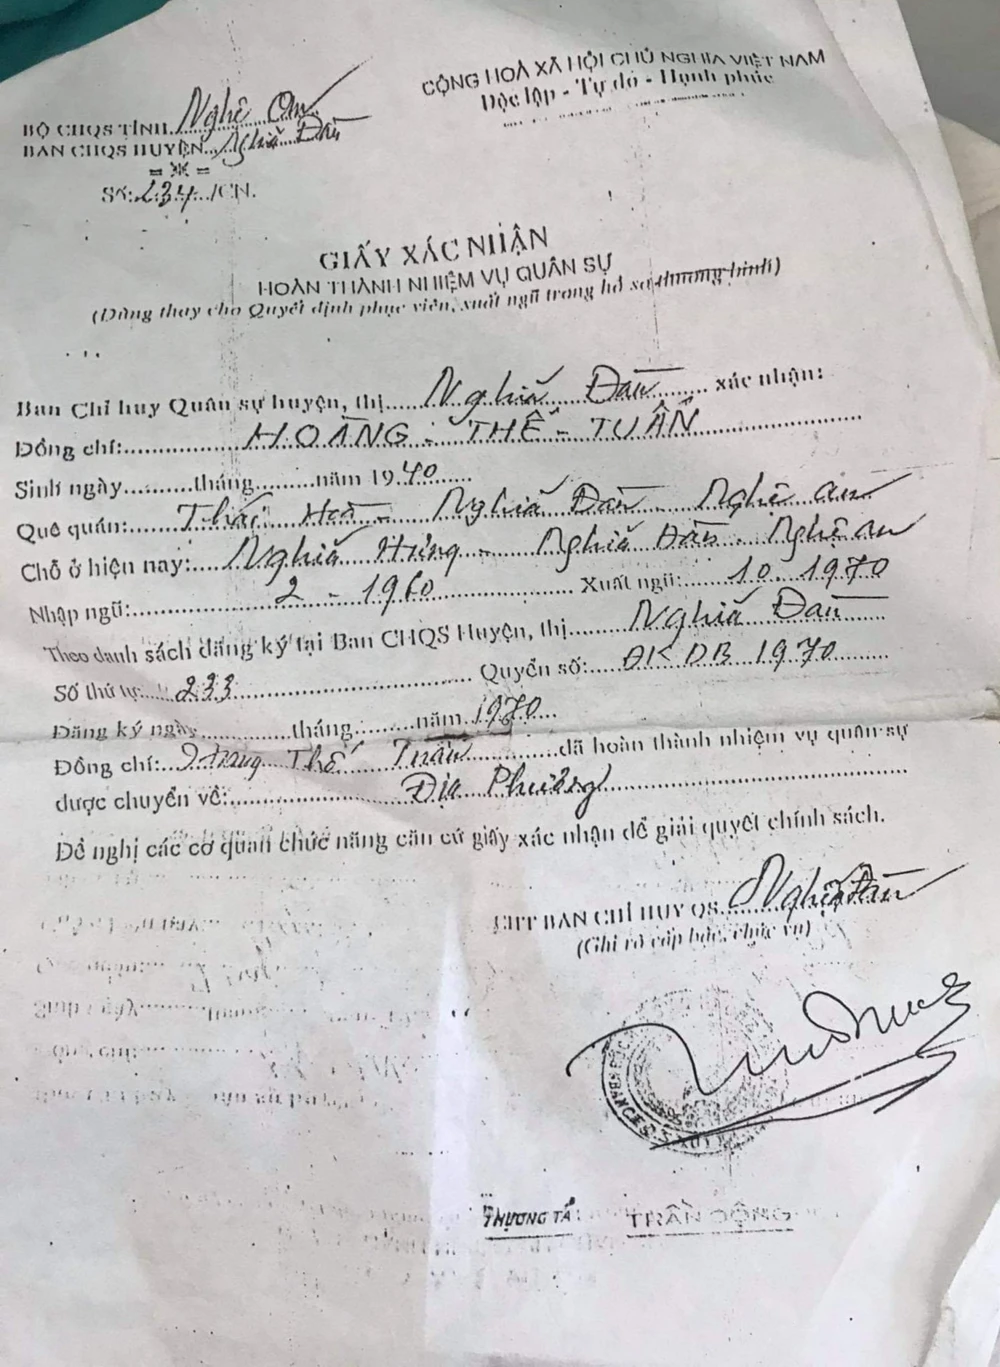 CỘNG HOÀ XÃ HỘI CHỦ NGHĨA VIỆT NAM
Độc lập - Tự do - Hạnh phúc
BỘ CHQS TỈNH Nghệ An
BAN CHQS HUYỆN Nghĩa Đàn
Số: 234 /CN.
GIẤY XÁC NHẬN
HOÀN THÀNH NHIỆM VỤ QUÂN SỰ
(Dùng thay cho Quyết định phục viên, xuất ngũ trong hồ sơ thương binh)
Ban Chỉ huy Quân sự huyện, thị Nghĩa Đàn xác nhận:
Đồng chí: HOÀNG - THẾ - TUẤN
Sinh ngày.........tháng.........năm 1940
Quê quán: Thái Hoà - Nghĩa Đàn - Nghệ an
Chỗ ở hiện nay: Nghĩa Hưng - Nghĩa Đàn - Nghệ an
Nhập ngũ: 2 - 1960 Xuất ngũ: 10. 1970
Theo danh sách đăng ký tại Ban CHQS Huyện, thị Nghĩa Đàn
Số thứ tự: 233 Quyển số: ĐK DB 1970
Đăng ký ngày.........tháng.........năm 1970
Đồng chí: Hoàng Thế Tuấn đã hoàn thành nhiệm vụ quân sự
được chuyển về: Địa Phương
Đề nghị các cơ quan chức năng căn cứ giấy xác nhận để giải quyết chính sách.
CHT BAN CHỈ HUY QS Nghĩa Đàn
(Ghi rõ cấp bậc, chức vụ)
THƯỢNG TÁ